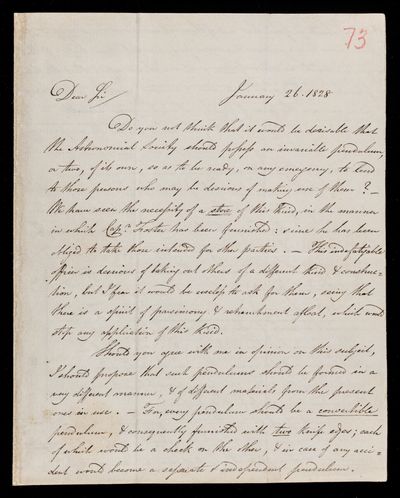 73
Dear Sir January 26. 1828
Do you not think that it would be desirable that
the Astronomical Society should possess an invariable pendulum,
or two, of its own, so as to be ready, on any emergency, to lend
to those persons who may be desirous of making use of them? —
We have seen the necessity of a store of this kind, in the manner
in which Capn. Foster has been furnished: since he has been
obliged to take those intended for other parties. — This indefatigable
officer is desirous of taking out others of a different kind & construc=
tion, but I fear it would be useless to ask for them, seeing that
there is a spirit of parsimony & retrenchment afloat, which would
stop any application of this kind.
Should you agree with me in opinion on this subject,
I should propose that such pendulums should be formed in a
very different manner, & of different materials, from the present
ones in use. — For, every pendulum should be a convertible
pendulum, & consequently furnished with two knife edges; each
of which would be a check on the other, & in case of any acci=
dent would become a separate & independent pendulum.